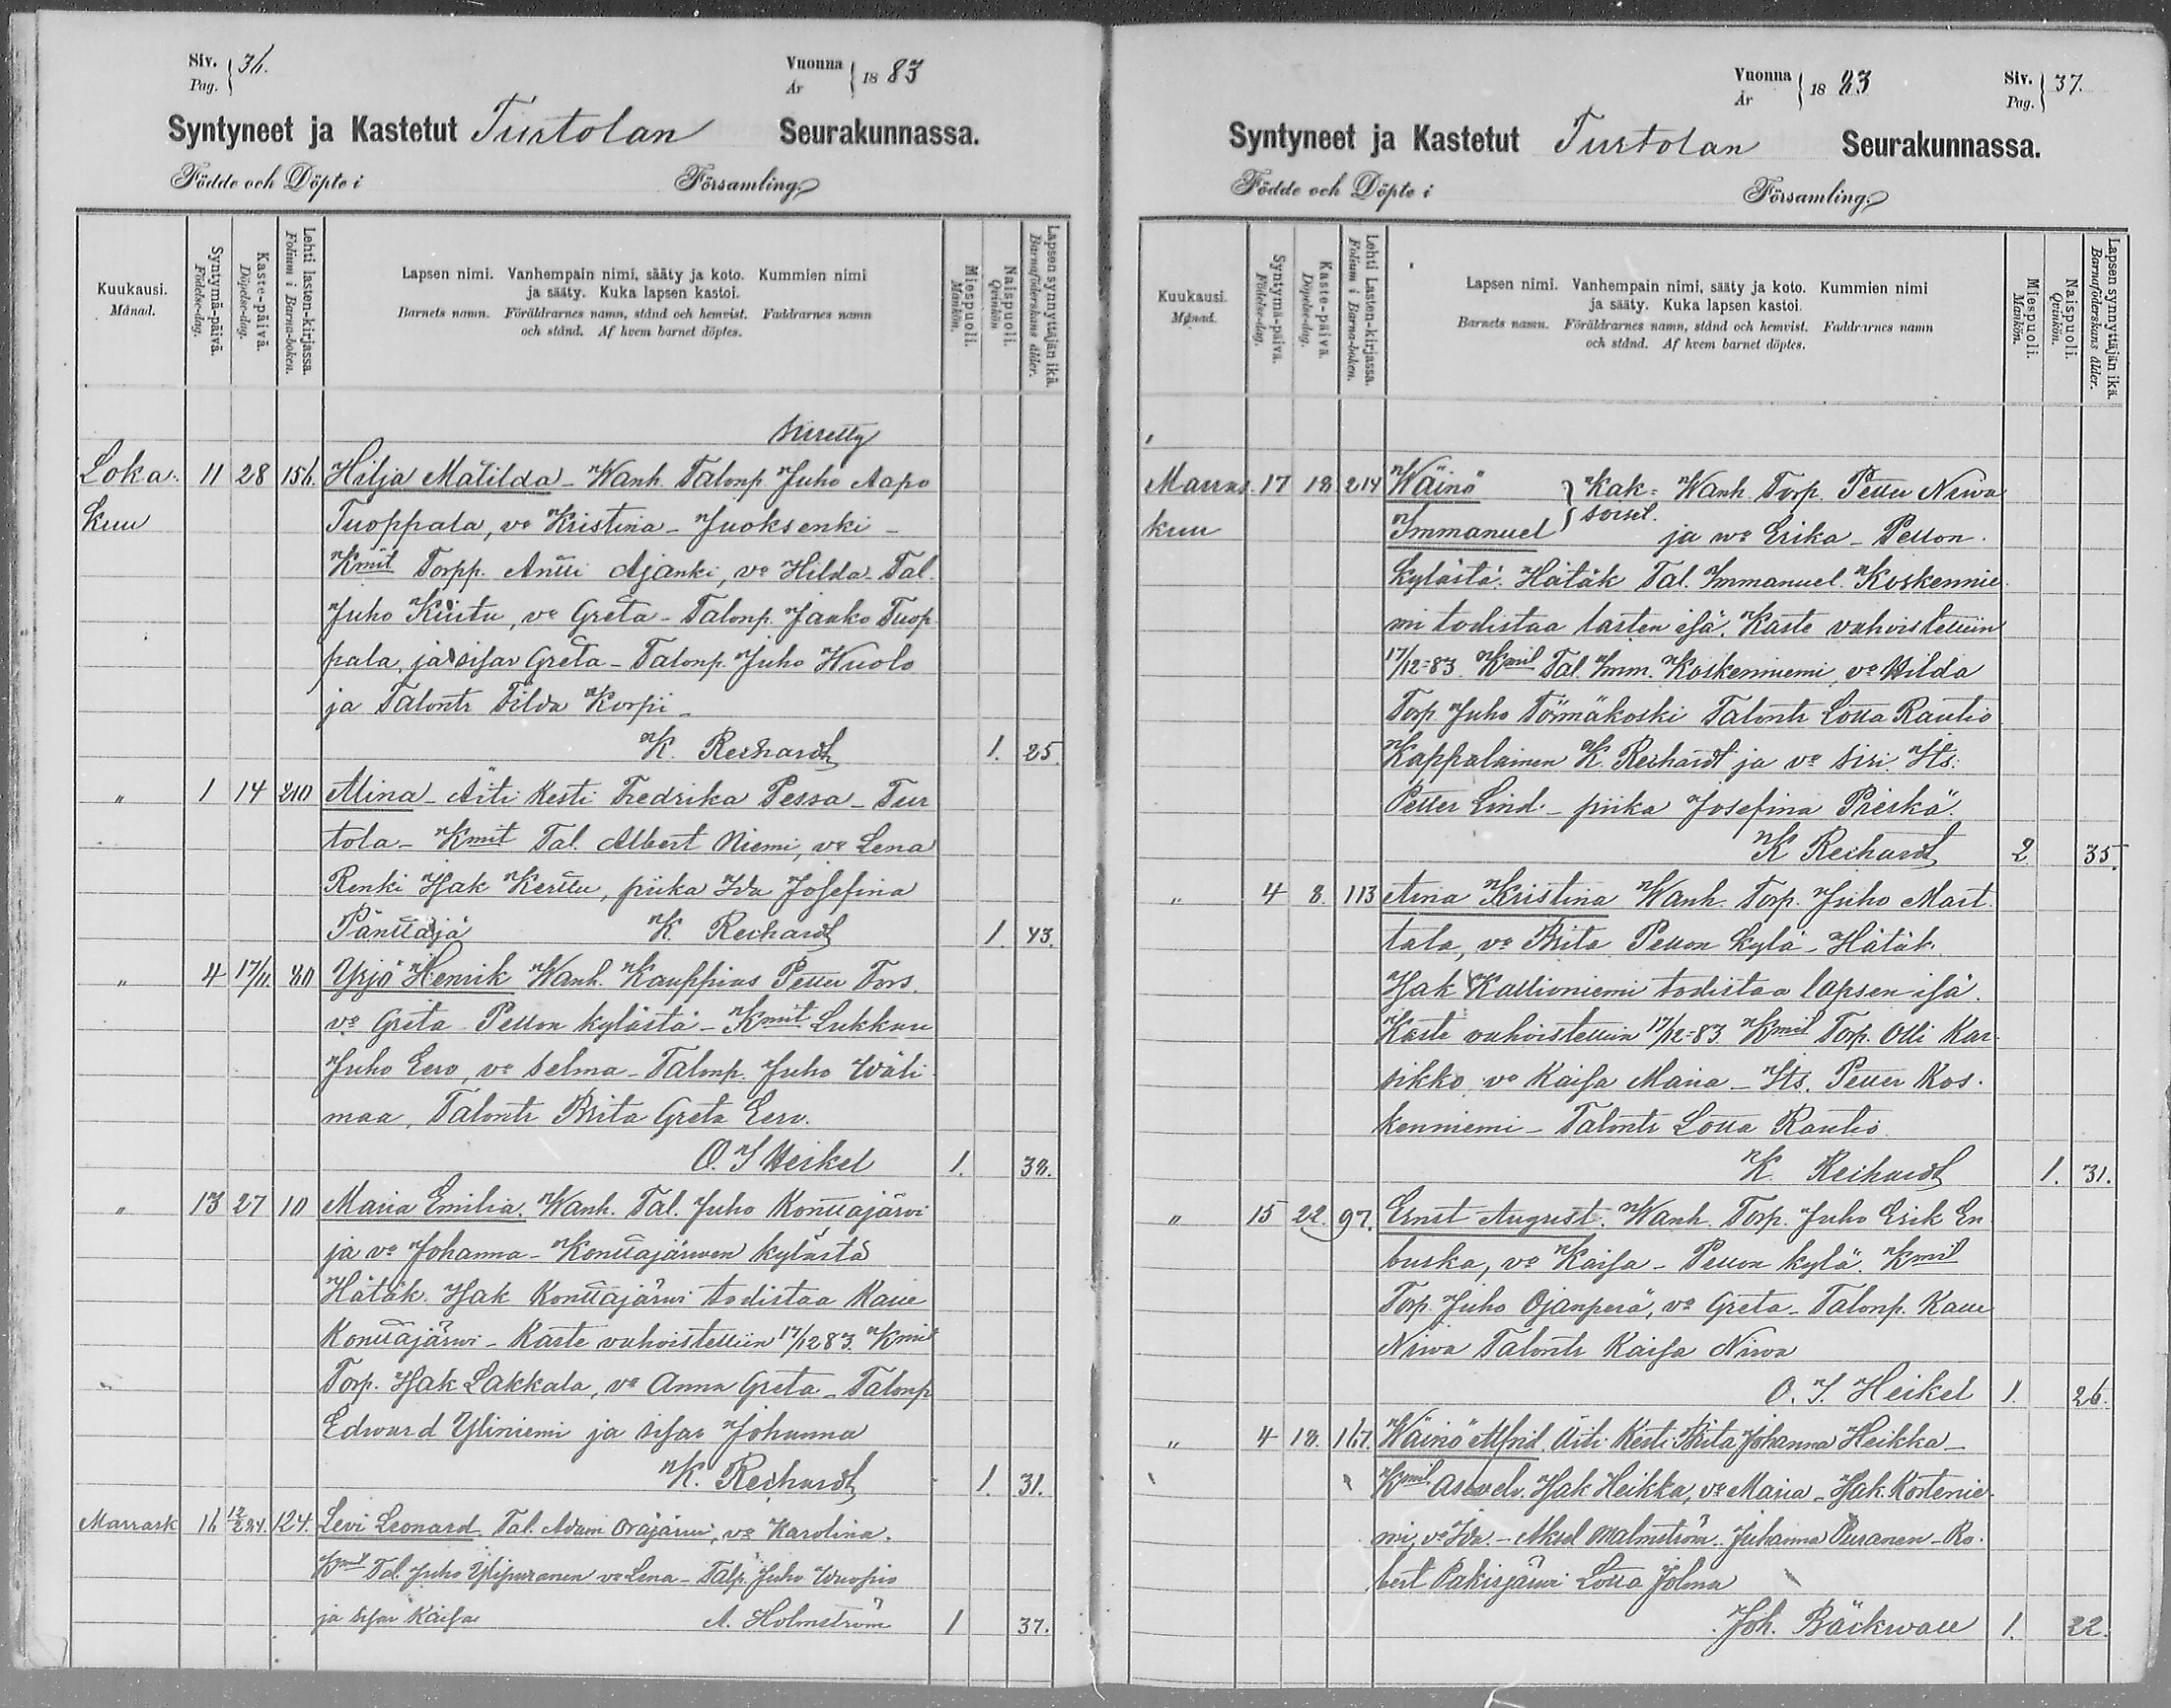 Siv. Pag. 36.
Vuonna År 1883
Syntyneet ja Kastetut Turtolan Seurakunnassa.
Födde och Döpte i Församling.
Kuukausi. Månad.
Syntymä-päivä. Födelse-dag.
Kaste-päivä. Döpelse-dag.
Lehti lasten-kirjassa. Folium i Barna-boken.
Lapsen nimi. Vanhempain nimi, sääty ja koto. Kummien nimi
ja sääty. Kuka lapsen kastoi.
Barnets namn. Föräldrarnes namn, stånd och hemvist. Faddrarnes namn
och stånd. Af hvem barnet döptes.
Miespuoli. Mankön.
Naispuoli. Qvinkön.
Lapsen synnyttäjän ikä. Barnaföderskans ålder.
Siirretty
Loka- 11 28 156. Hilja Matilda - Wanh. Talonp. Juho Aapo
kuu Tuoppala, vo Kristina - Juoksenki -
Kmit Torpp. Antti Ajanki, vo Hilda - Tal.
Juho Kiiitu, vo Greta - Talonp. Jaako Tuop
pala, ja sisar Greta - Talonp. Juho Wuolo
ja Talontr Tilda Korpi -
K. Rechardt 1. 25.
" 1 14 210 Alina - Äiti Kesti Fredrika Pessa - Tur
tola - Kmit Tal. Albert Niemi, vo Lena
Renki Isak Kerttu, piika Ida Josefina
Pänttäjä K. Rechardt 1. 43.
" 4 17/11. 80 Yrjö Henrik Wanh. Kauppias Petter Fors.
vo Greta Pellon kylästä - Kmit Lukkari
Juho Eero, vo Selma - Talonp. Juho Wäli
maa, Talontr Brita Greta Eero.
O. I Heikel 1. 38.
" 13 27 10 Maria Emilia. Wanh. Tal. Juho Konttajärvi
ja vo Johanna - Konttajärwen kylästä
Hätäk. Isak Konttajärwi todistaa Kalle
Konttajärwi - Kaste vahvistettiin 17/12 83. Kmit
Torp. Isak Lakkala, vo Anna Greta - Talonp
Edward Yliniemi ja sisar Johanna
K. Rechardt 1. 31.
Marrask 16 12/2 84. 124. Levi Leonard Tal. Adam Orajärwi, vo Karolina.
Kmit Tal. Juho Ylipuranen vo Lena - Talp. Juho Wuopio
ja sisar Kaisa A. Holmström 1 37.
Vuonna År 1883
Siv. Pag. 37.
Syntyneet ja Kastetut Turtolan Seurakunnassa.
Födde och Döpte i Församling.
Kuukausi. Månad.
Syntymä-päivä. Födelse-dag.
Kaste-päivä. Döpelse-dag.
Lehti Lasten-kirjassa. Folium i Barna-boken.
Lapsen nimi. Vanhempain nimi, sääty ja koto. Kummien nimi
ja sääty. Kuka lapsen kastoi.
Barnets namn. Föräldrarnes namn, stånd och hemvist. Faddrarnes namn
och stånd. Af hvem barnet döptes.
Miespuoli. Mankön.
Naispuoli. Qvinkön.
Lapsen synnyttäjän ikä. Barnaföderskans ålder.
Marras 17 18 214 Wäinö } Kak= Wanh. Torp. Petter Niwa
kuu Immanuel } soiset. ja wo Erika - Pellon
kylästä. Hätäk Tal. Immanuel Koskennie
mi todistaa lasten isä. Kaste vahvistettiin
17/12=83. Kmit Tal. Imm. Koskenniemi, vo Hilda
Torp. Juho Törmäkoski Talontr Lotta Rautio
Kappalainen K. Rechardt ja vo Siri. Its.
Petter Lind. - piika Josefina Pieskä.
K Rechardt 2. 35.
" 4 8. 113 Aina Kristina Wanh. Torp. Juho Mart
tala, vo Brita Pellon kylä - Hätäk.
Isak Kallioniemi todistaa lapsen isä.
Kaste vahvistettiin 17/12=83 Kmit Torp. Olli Kar
sikko vo Kaisa Maria - Its. Petter Kos.
kenniemi - Talontr Lotta Rautio
K. Rechardt 1. 31.
" 15 22. 97. Ernst August. Wanh. Torp. Juho Erik En
buska, vo Kaisa - Pellon kylä. Kmit
Torp. Juho Ojanperä, vo Greta - Talonp. Kalle
Niwa Talontr Kaisa Niwa
O. I. Heikel 1. 26.
" 4 18. 167. Wäinö Alfrid. Äiti Kesti Brita Johanna Heikka -
Kmit Isak Heikka, vo Maria - Isak Kortenie
mi, vo Ida. - Aksel Malmström. Johanna Puranen - Ro.
bert Pakisjärwi Lotta Jolma
Joh. Bäckwall 1. 22.